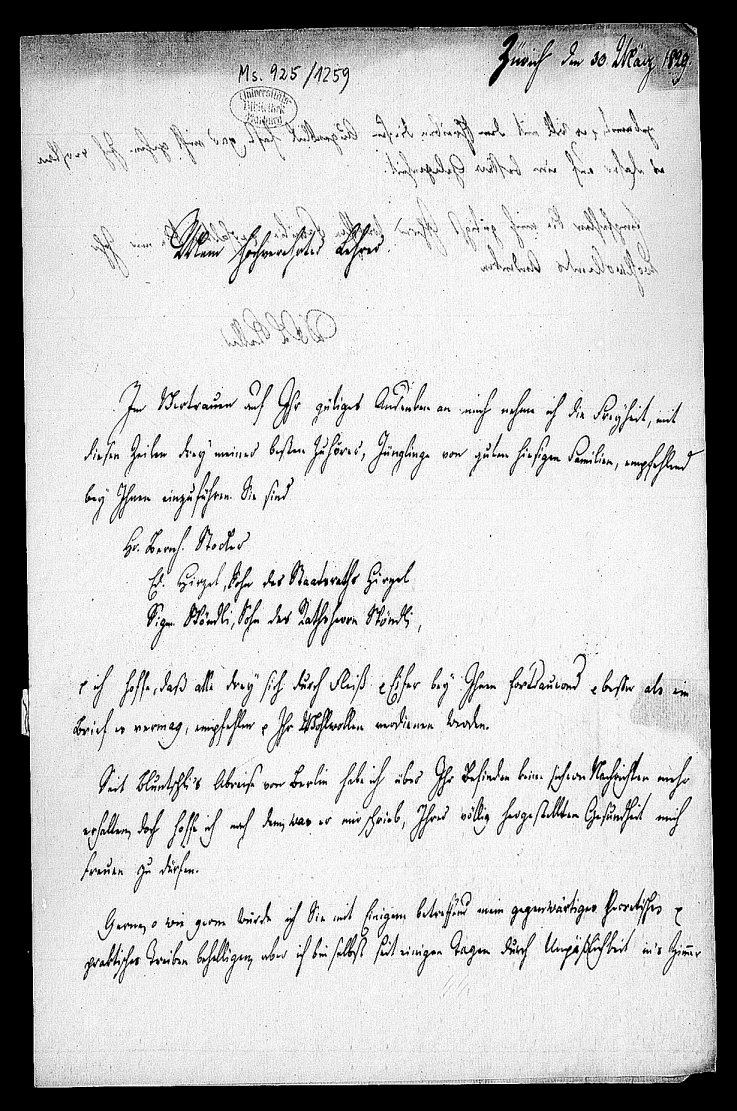 Zürich den 30. März 1829.
Ms. 925/1259
Universitäts-
Bibliothek
Marburg
Mein hochverehrter Lehrer.
Im Vertrauen auf Ihr gütiges Andenken an mich nehme ich die Freyheit, mit
diesen Zeilen drey meiner besten Zuhörer, Jünglinge von guten hiesigen Familien, empfehlend
bey Ihnen einzuführen. Sie sind
Hr. Bernh. Stocker
Ed. Hirzel, Sohn des Staatsraths Hirzel
Sigm. Wöndli, Sohn des Rathsherrn Wöndli,
& ich hoffe, daß alle drey sich durch Fleiß & Eifer bey Ihnen fortdaurend & besser als ein
Brief es vermag, empfehlen & Ihr Wohlwollen verdienen werden.
Seit Bluntschli's Abreise von Berlin habe ich über Ihr Befinden keine sichern Nachrichten mehr
erhalten, doch hoffe ich nach dem, was er mir schrieb, Ihrer völlig hergestellten Gesundheit mich
freuen zu dürfen.
Gerne, o wie gerne würde ich Sie mit Einigem betreffend mein gegenwärtiges theoretisches &
praktisches Treiben behelligen, aber ich bin selbst seit einigen Tagen durch Unpäßlichkeit in's Zimmer